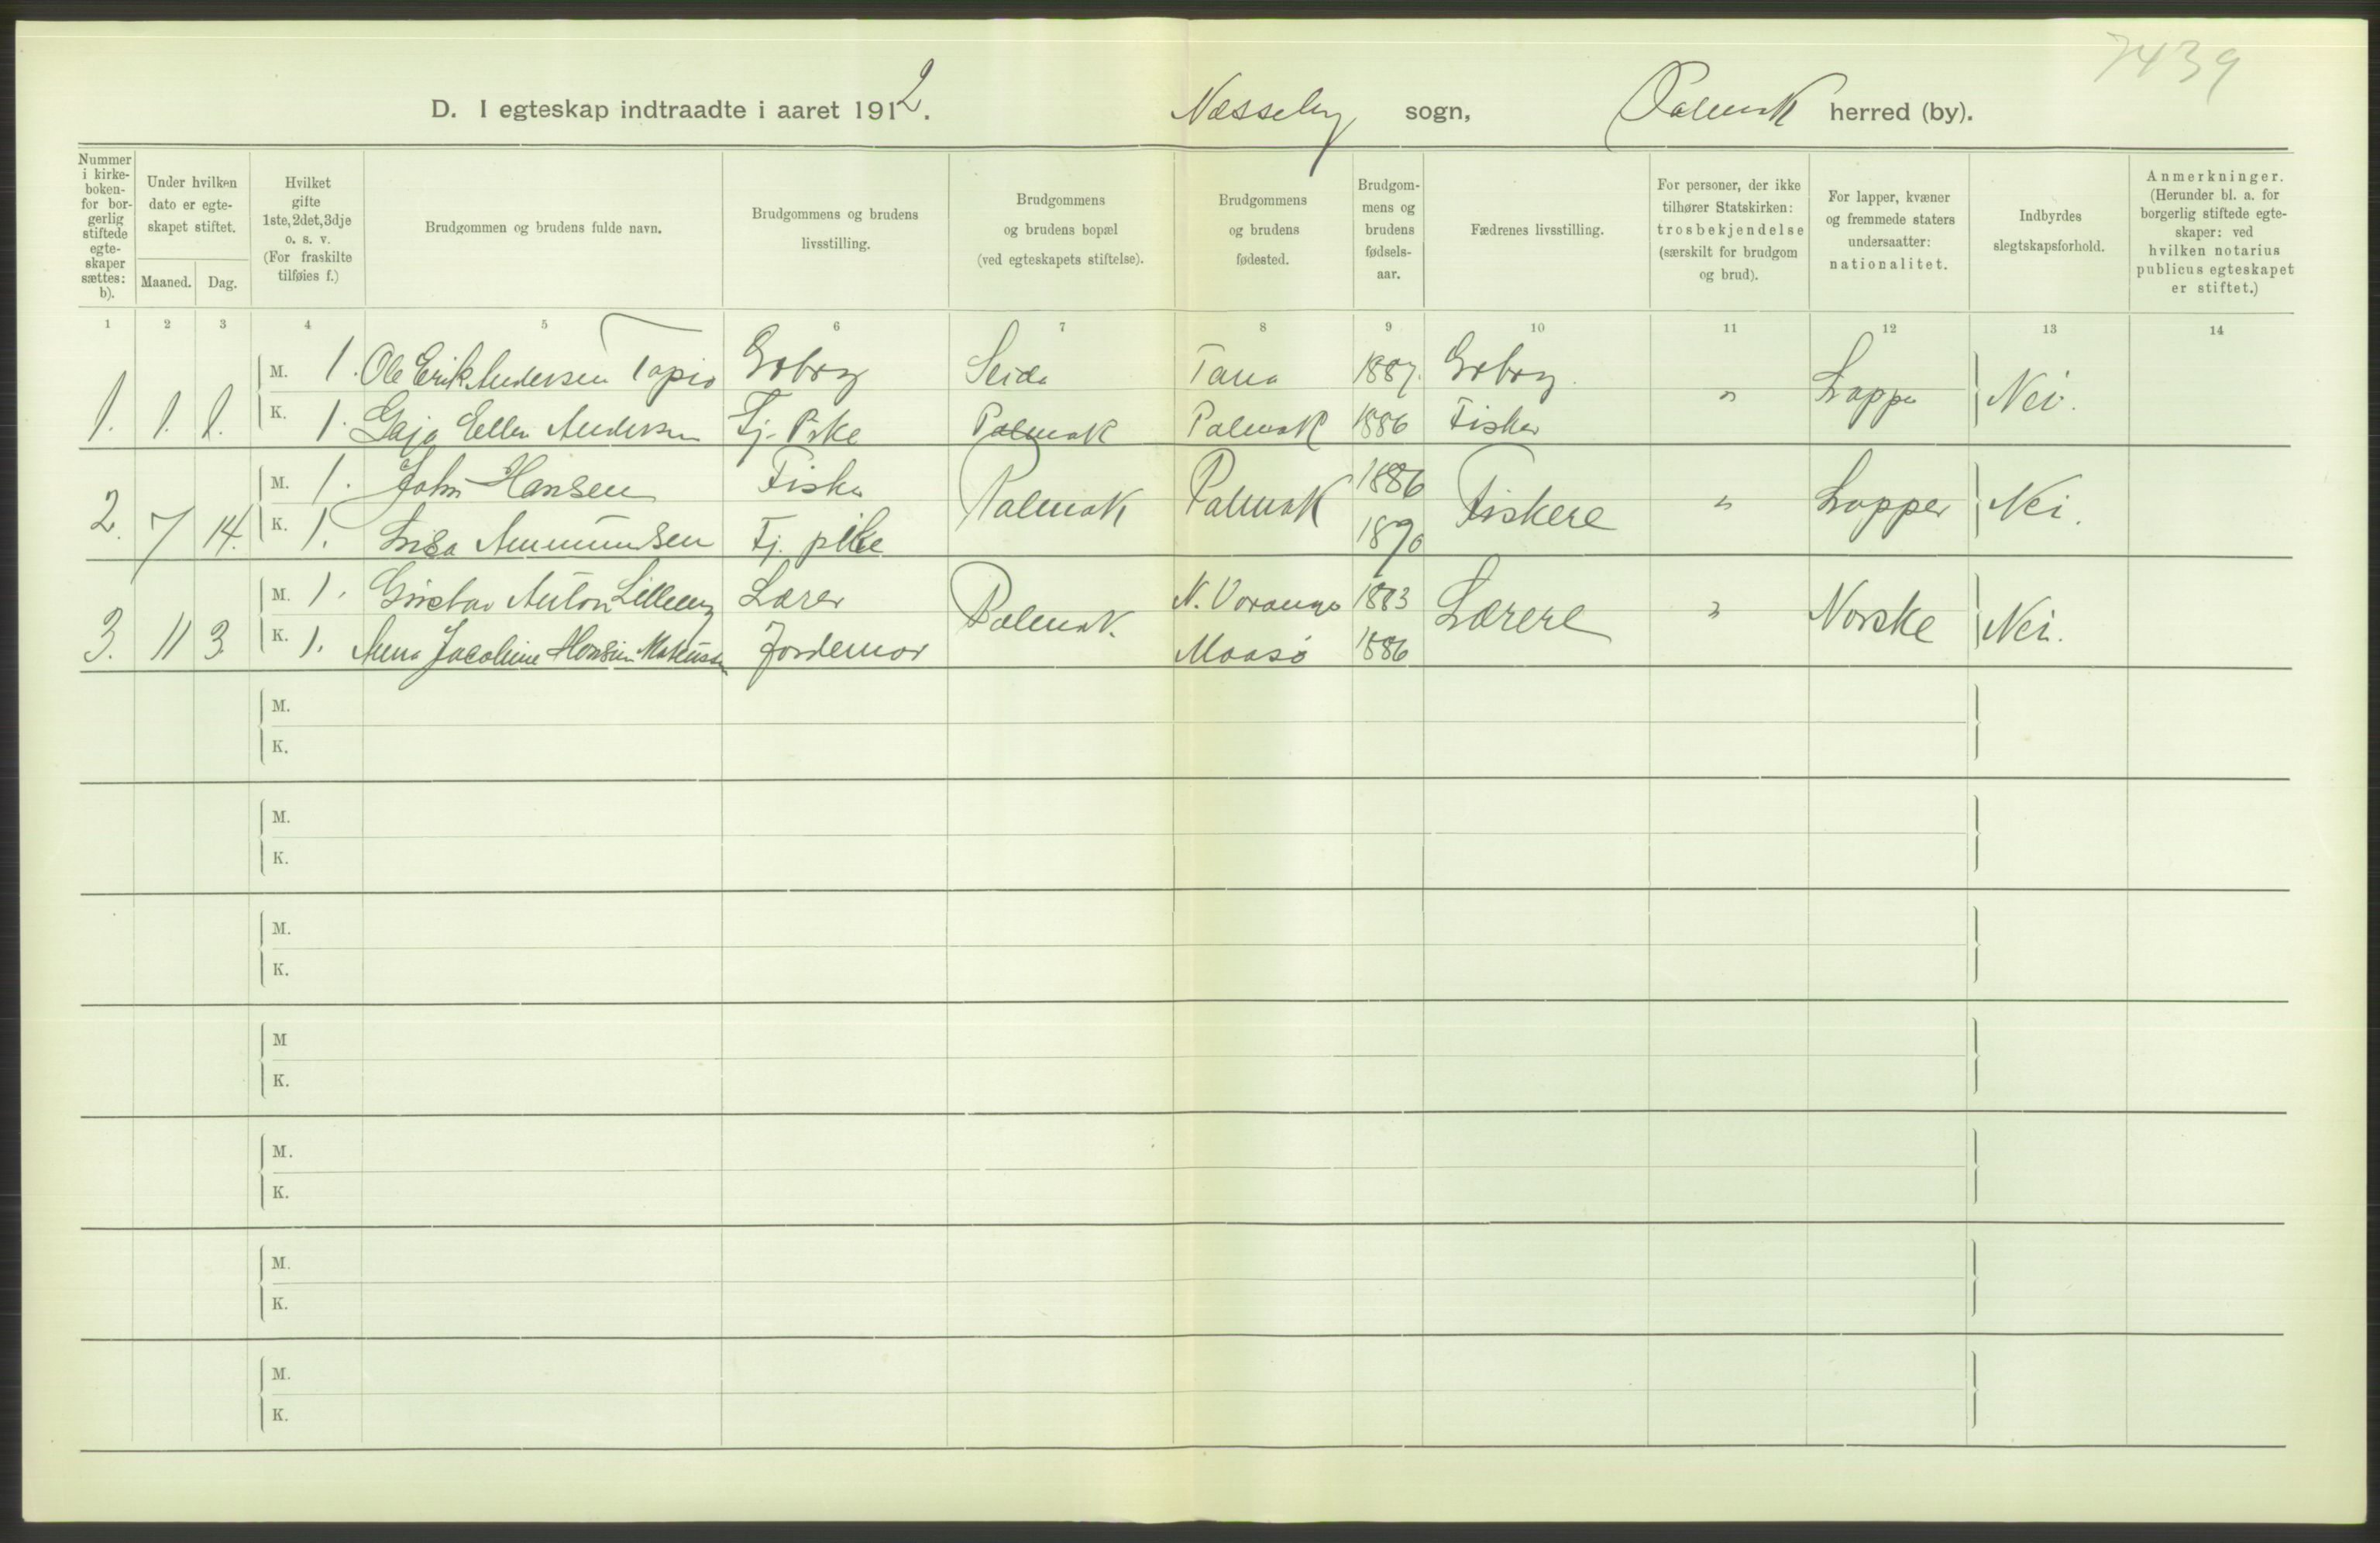 7439
D. I egteskap indtraadte i aaret 1912. Næsseby sogn, Polmak herred (by).
Nummer i kirke-boken- for bor-gerlig stiftede egte-skaper sættes: b).
Under hvilken dato er egte-skapet stiftet.
Maaned. Dag.
Hvilket gifte 1ste, 2det, 3dje o. s. v. (For fraskilte tilføies f.)
Brudgommen og brudens fulde navn.
Brudgommens og brudens livsstilling.
Brudgommens og brudens bopæl (ved egteskapets stiftelse).
Brudgommens og brudens fødested.
Brudgom-mens og brudens fødsels-aar.
Fædrenes livsstilling.
For personer, der ikke tilhører Statskirken: trosbekjendelse (særskilt for brudgom og brud).
For lapper, kvæner og fremmede staters undersaatter: nationalitet.
Indbyrdes slegtskapsforhold.
Anmerkninger. (Herunder bl. a. for borgerlig stiftede egte-skaper: ved hvilken notarius publicus egteskapet er stiftet.)
1 2 3 4 5 6 7 8 9 10 11 12 13 14
M. 1. Ole Erik Andersen Tapio Grbrg Seida Tana 1887. Grbrg.
1. 1. 1. " Lapper Nei.
K. 1. Gaja Ellen Andersen Tj. Pike Polmak Polmak 1886 Fisker
M. 1. John Hansen Fisker 1886
2. 7 14. Polmak Polmak Fiskere " Lapper Nei.
K. 1. Lisa Ammundsen Tj. pike 1890
M. 1. Gustav Anton Lilleeng Lærer N. Varanger 1883
3. 11 3 Polmak. Lærere " Norske Nei.
K. 1. Anna Jacobine Hansen Makusson Jordemor Maasø 1886
M.
K.
M.
K.
M.
K.
M
K.
M.
K.
M.
K.
M.
K.